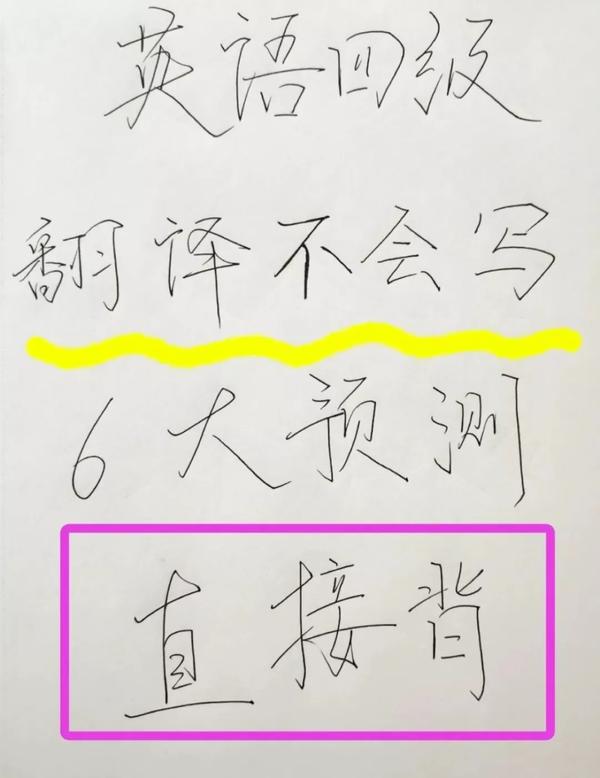 英语四级
翻译不会写
6大预测
直接背